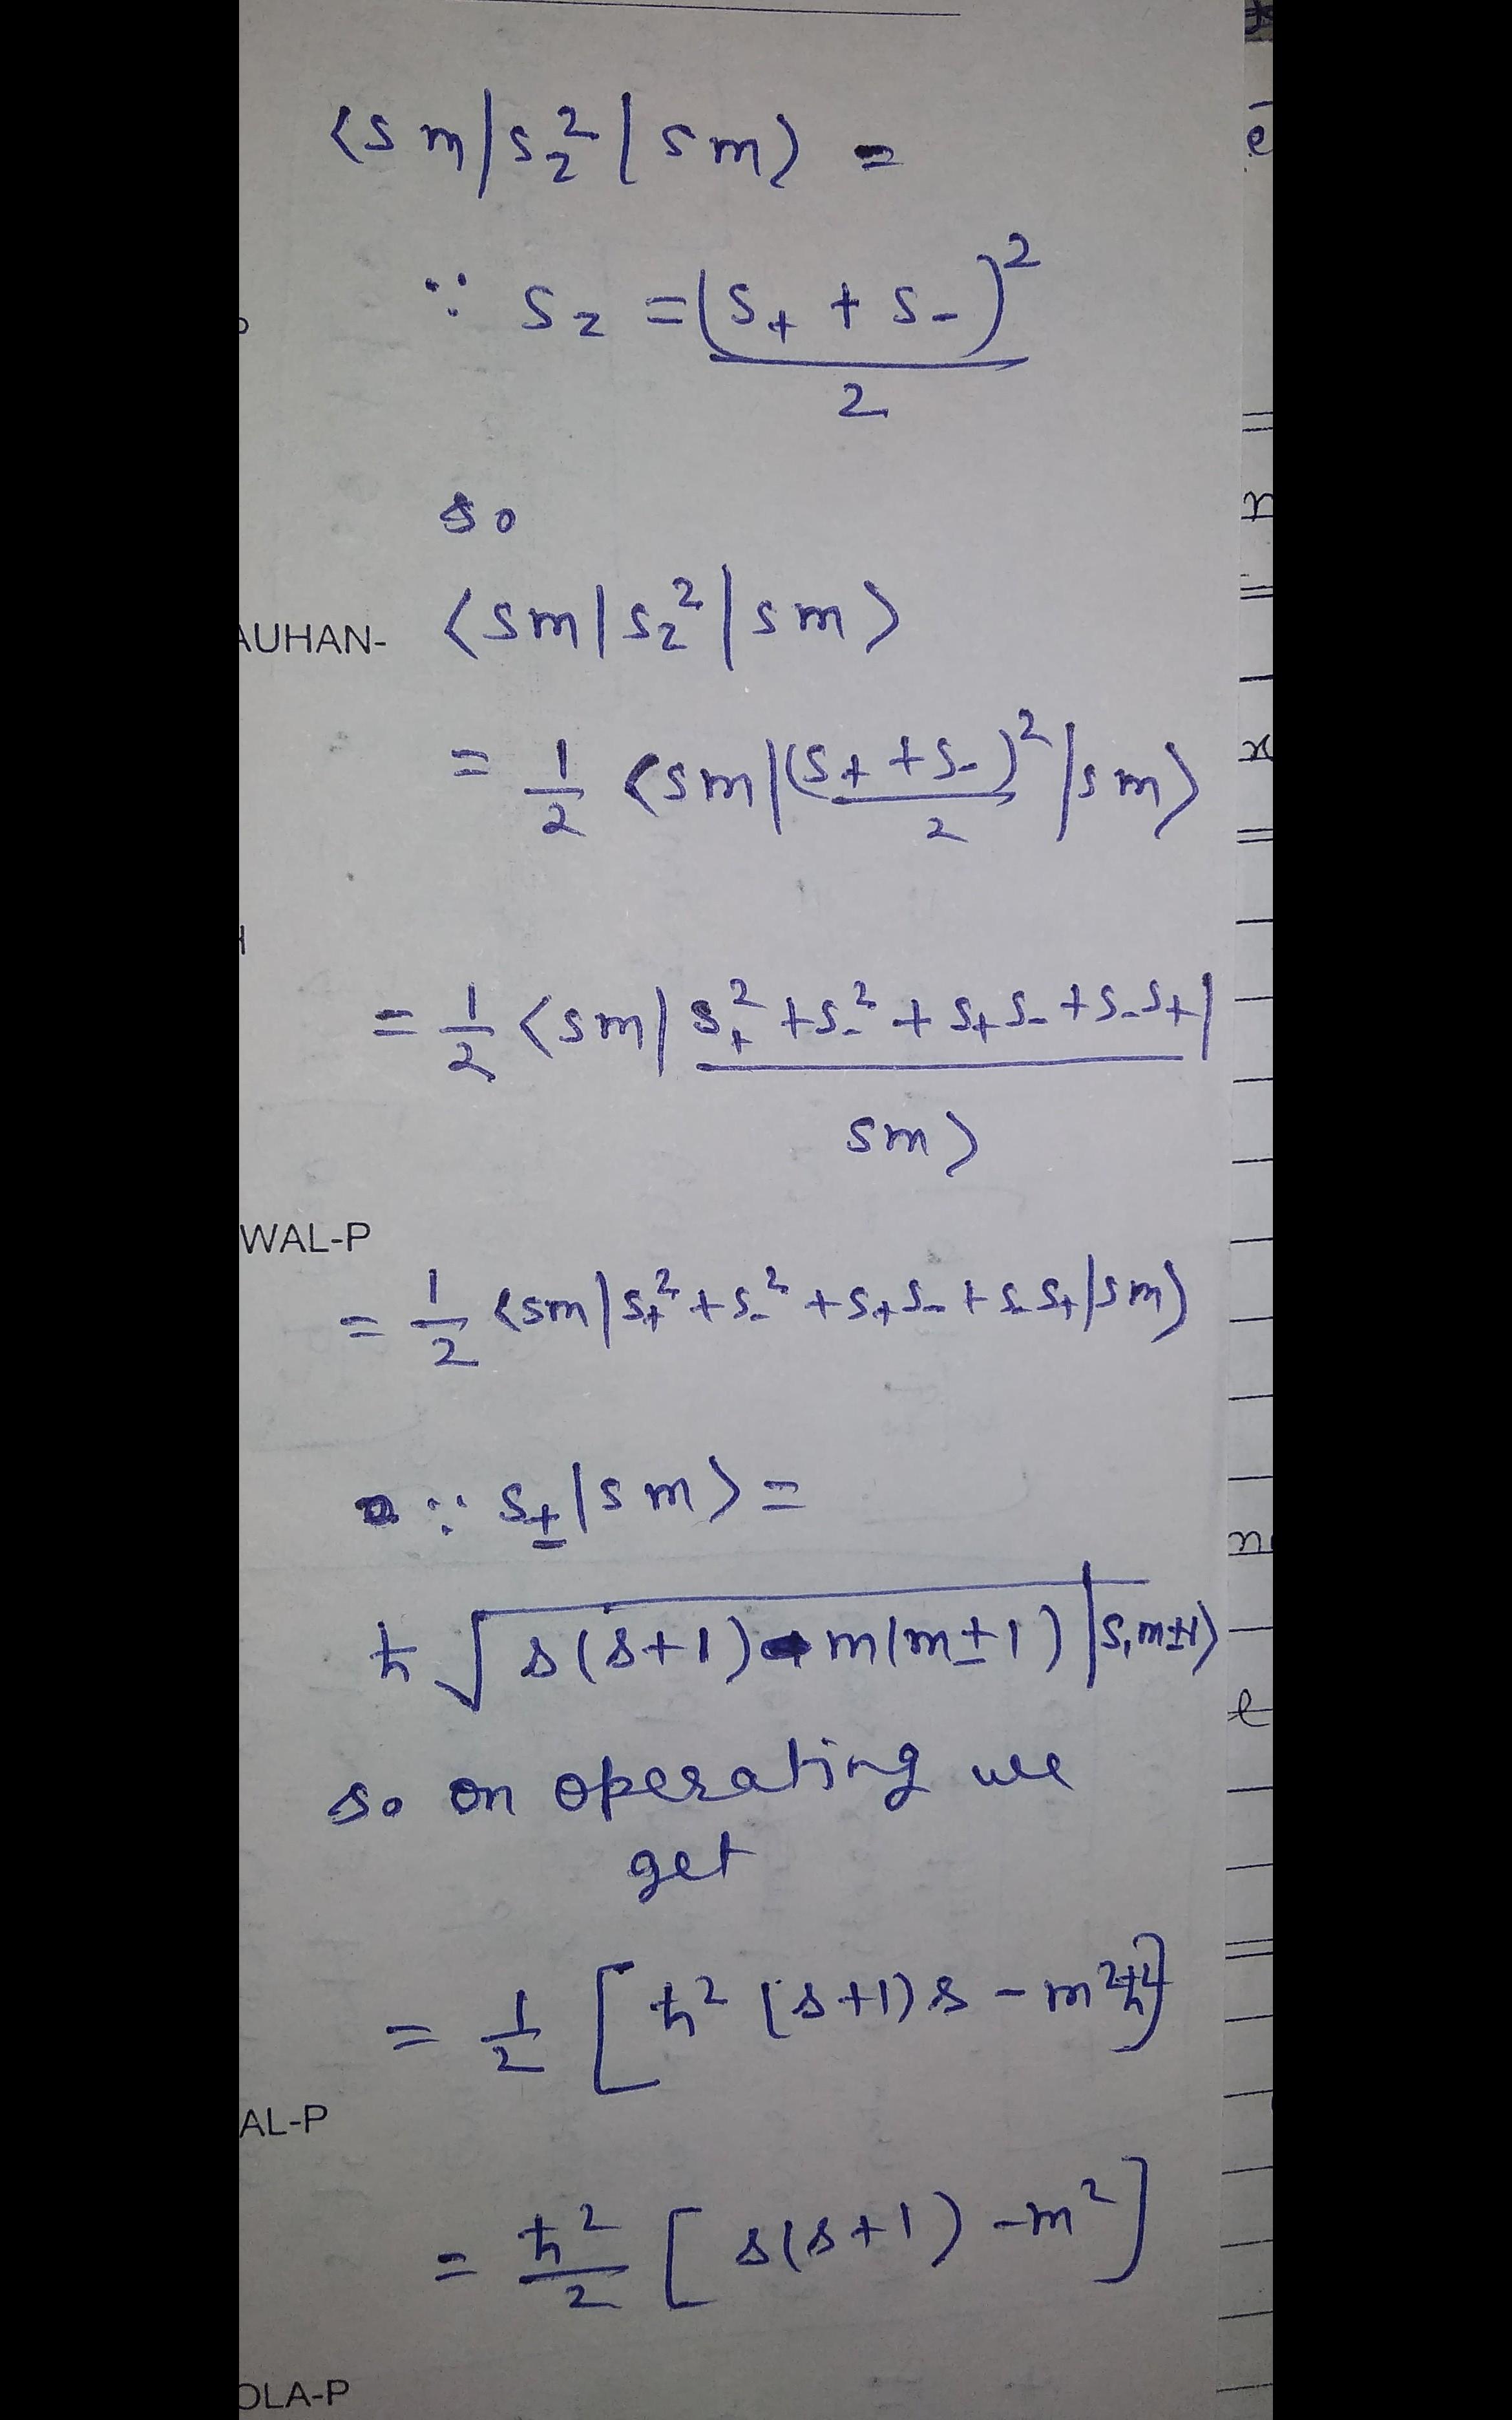 ⟨sm|s_z^2|sm⟩ =
∵ s_z = (s_+ + s_-)^2 / 2
so
AUHAN-
⟨sm|s_z^2|sm⟩
= 1/2 ⟨sm|(s_+ + s_-)^2 / 2|sm⟩
= 1/2 ⟨sm| s_+^2 + s_-^2 + s_+ s_- + s_- s_+ |
sm⟩
WAL-P
= 1/2 ⟨sm|s_+^2 + s_-^2 + s_+ s_- + s_- s_+|sm⟩
∵ s_±|sm⟩ =
ħ √ s(s+1) - m(m±1) |s, m±1⟩
so on operating we
get
= 1/2 [ħ^2 (s+1)s - m^2 ħ^2]
AL-P
= ħ^2/2 [s(s+1) - m^2]
OLA-P